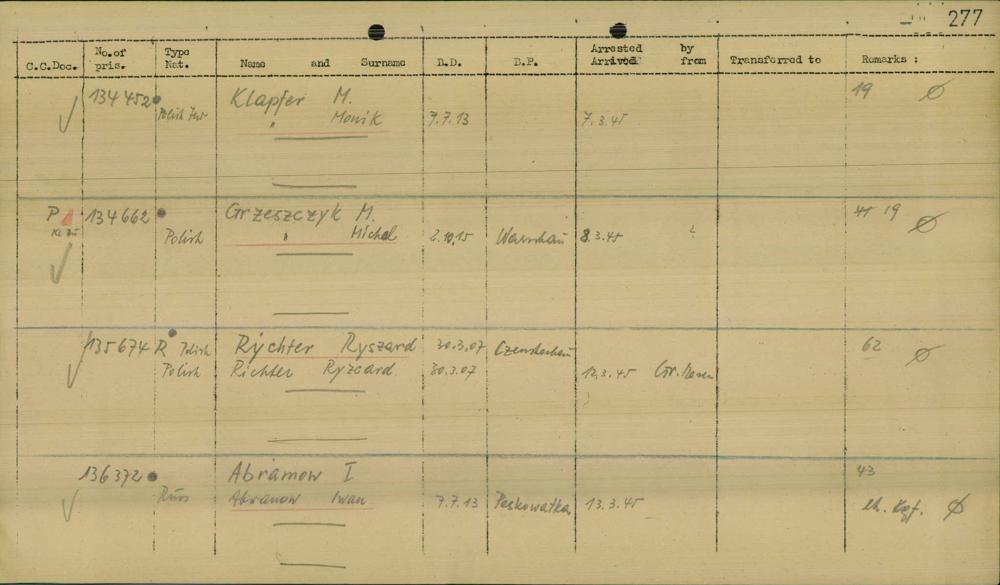 277
C.C.Doc. No.of pris. Type Nat. Name and Surname B.D. B.P. Arrested by Arrived from Transferred to Remarks :
134452 Klapfer M. 19 Ø
Polish Jew " Monik 7.7.13 7.3.45
P 134662 Grzeszczyk M. 41 19 Ø
Polish " Michal 2.10.15 Warschau 8.3.45 ?
135674 R Polish Rychter Ryszard 30.3.07 Czenstochau 62 Ø
Polish Richter Ryzcard 30.3.07 12.3.45 Gr. Rosen
136372 Abramow I 43
Russ Abranow Iwan 7.7.13 Peskowatka 13.3.45 eh. Kgf. Ø